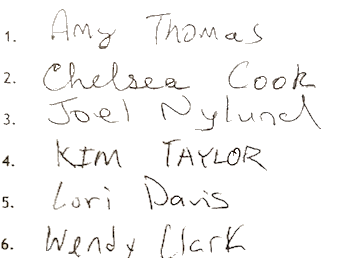 1. Amy Thomas
2. Chelsea Cook
3. Joel Nylund
4. KIM TAYLOR
5. Lori Davis
6. Wendy Clark